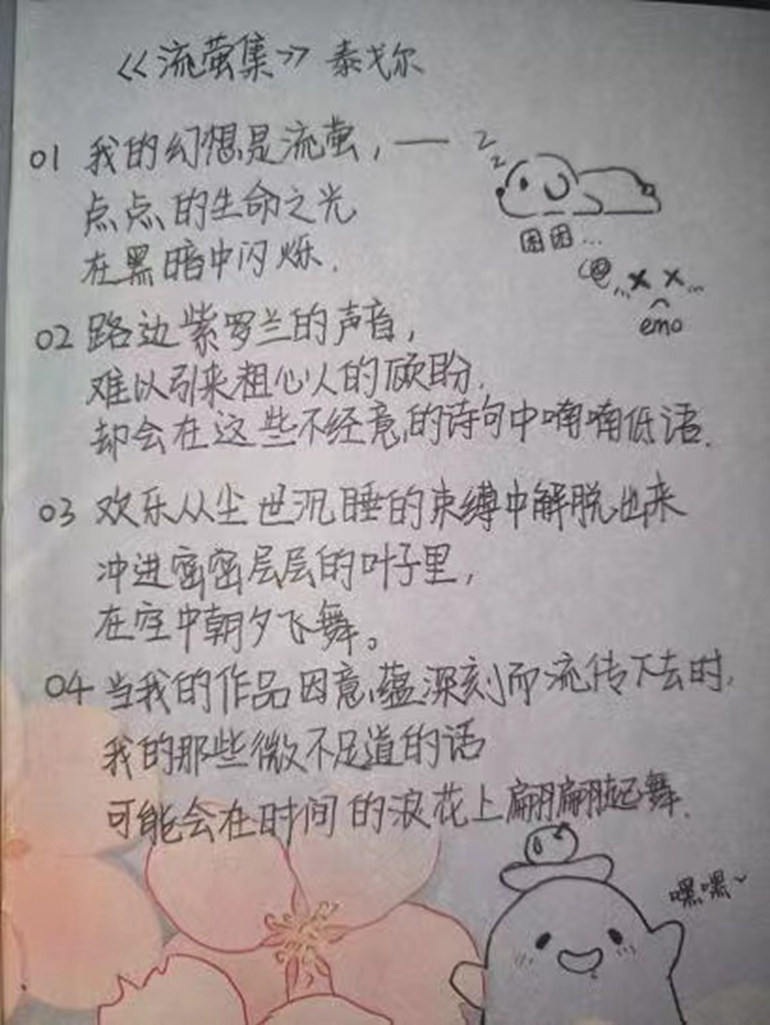 《流萤集》 泰戈尔
01 我的幻想是流萤，——
点点的生命之光
在黑暗中闪烁．
zz
困困...
emo
02 路边紫罗兰的声音，
难以引来粗心人的顾盼．
却会在这些不经意的诗句中喃喃低语．
03 欢乐从尘世沉睡的束缚中解脱出来
冲进密密层层的叶子里，
在空中朝夕飞舞。
04 当我的作品因意蕴深刻而流传下去时，
我的那些微不足道的话
可能会在时间的浪花上翩翩起舞．
嘿嘿~